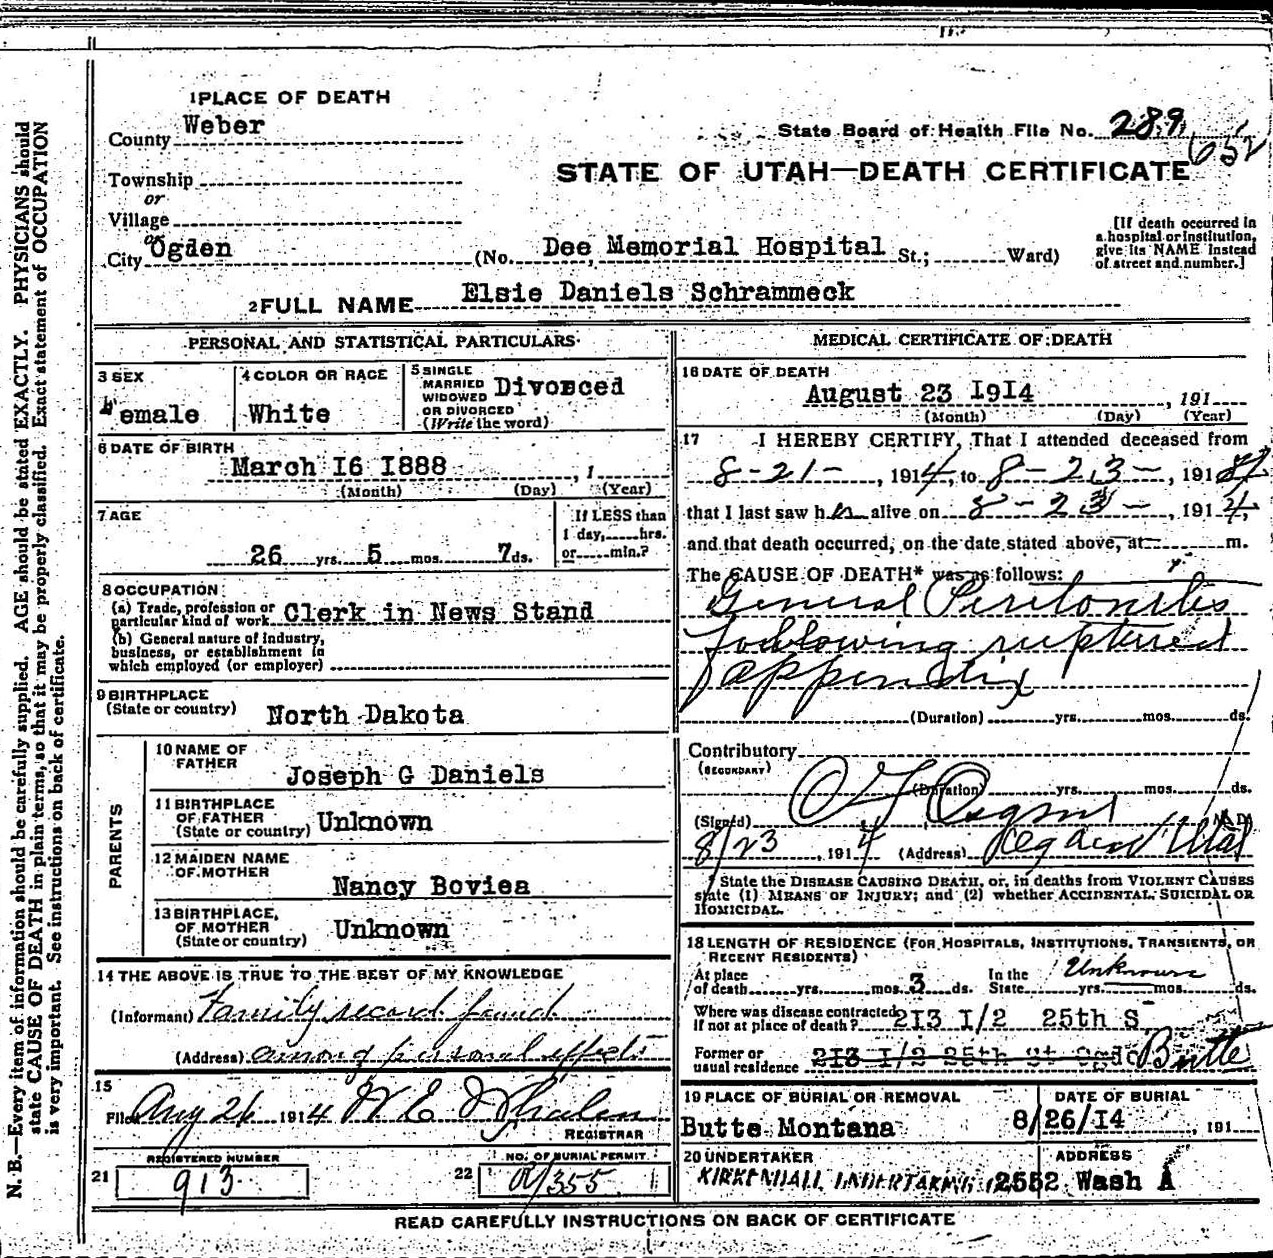 1 PLACE OF DEATH
County Weber
State Board of Health File No. 289
652
Township
or
Village
or
City Ogden
STATE OF UTAH—DEATH CERTIFICATE
(No. Dee Memorial Hospital St.; Ward)
[If death occurred in
a hospital or institution,
give its NAME instead
of street and number.]
2 FULL NAME Elsie Daniels Schrammeck
PERSONAL AND STATISTICAL PARTICULARS
3 SEX
Female
4 COLOR OR RACE
White
5 SINGLE
MARRIED
WIDOWED
OR DIVORCED
(Write the word)
Divorced
6 DATE OF BIRTH
March I6 I888, 1
(Month) (Day) (Year)
7 AGE
26 yrs. 5 mos. 7 ds.
If LESS than
1 day, hrs.
or min.?
8 OCCUPATION
(a) Trade, profession or
particular kind of work Clerk in News Stand
(b) General nature of industry,
business, or establishment in
which employed (or employer)
9 BIRTHPLACE
(State or country) North Dakota
PARENTS
10 NAME OF
FATHER
Joseph G Daniels
11 BIRTHPLACE
OF FATHER
(State or country) Unknown
12 MAIDEN NAME
OF MOTHER
Nancy Boviea
13 BIRTHPLACE,
OF MOTHER
(State or country) Unknown
14 THE ABOVE IS TRUE TO THE BEST OF MY KNOWLEDGE
(Informant) Family record found
(Address) among personal effects
15
Filed Aug 26 1914 W E Whalen
REGISTRAR
21 REGISTERED NUMBER
913
22 NO. OF BURIAL PERMIT
355
MEDICAL CERTIFICATE OF DEATH
16 DATE OF DEATH
August 23 I9I4, 191
(Month) (Day) (Year)
17 I HEREBY CERTIFY, That I attended deceased from
8-21-, 1914, to 8-23-, 191
that I last saw her alive on 8-23-, 1914,
and that death occurred, on the date stated above, at m.
The CAUSE OF DEATH* was as follows:
General Peritonitis
following ruptured
appendix
(Duration) yrs. mos. ds.
Contributory
(SECONDARY)
(Duration) yrs. mos. ds.
(Signed) M. D.
8/23, 1914 (Address) Ogden Utah
* State the DISEASE CAUSING DEATH, or, in deaths from VIOLENT CAUSES
state (1) MEANS OF INJURY; and (2) whether ACCIDENTAL, SUICIDAL OR
HOMICIDAL.
18 LENGTH OF RESIDENCE (FOR HOSPITALS, INSTITUTIONS, TRANSIENTS, OR
RECENT RESIDENTS)
At place
of death yrs. mos. 3 ds.
In the
State Unknown yrs. mos. ds.
Where was disease contracted
if not at place of death? 2I3 I/2 25th S
Former or
usual residence 2I3 I/2 25th St Ogde Butte
19 PLACE OF BURIAL OR REMOVAL
Butte Montana
DATE OF BURIAL
8/26/I4, 191
20 UNDERTAKER
KIRKENDALL UNDERTAKING
ADDRESS
2552 Wash A
READ CAREFULLY INSTRUCTIONS ON BACK OF CERTIFICATE
N. B.—Every item of information should be carefully supplied. AGE should be stated EXACTLY. PHYSICIANS should
state CAUSE OF DEATH in plain terms, so that it may be properly classified. Exact statement of OCCUPATION
is very important. See instructions on back of certificate.